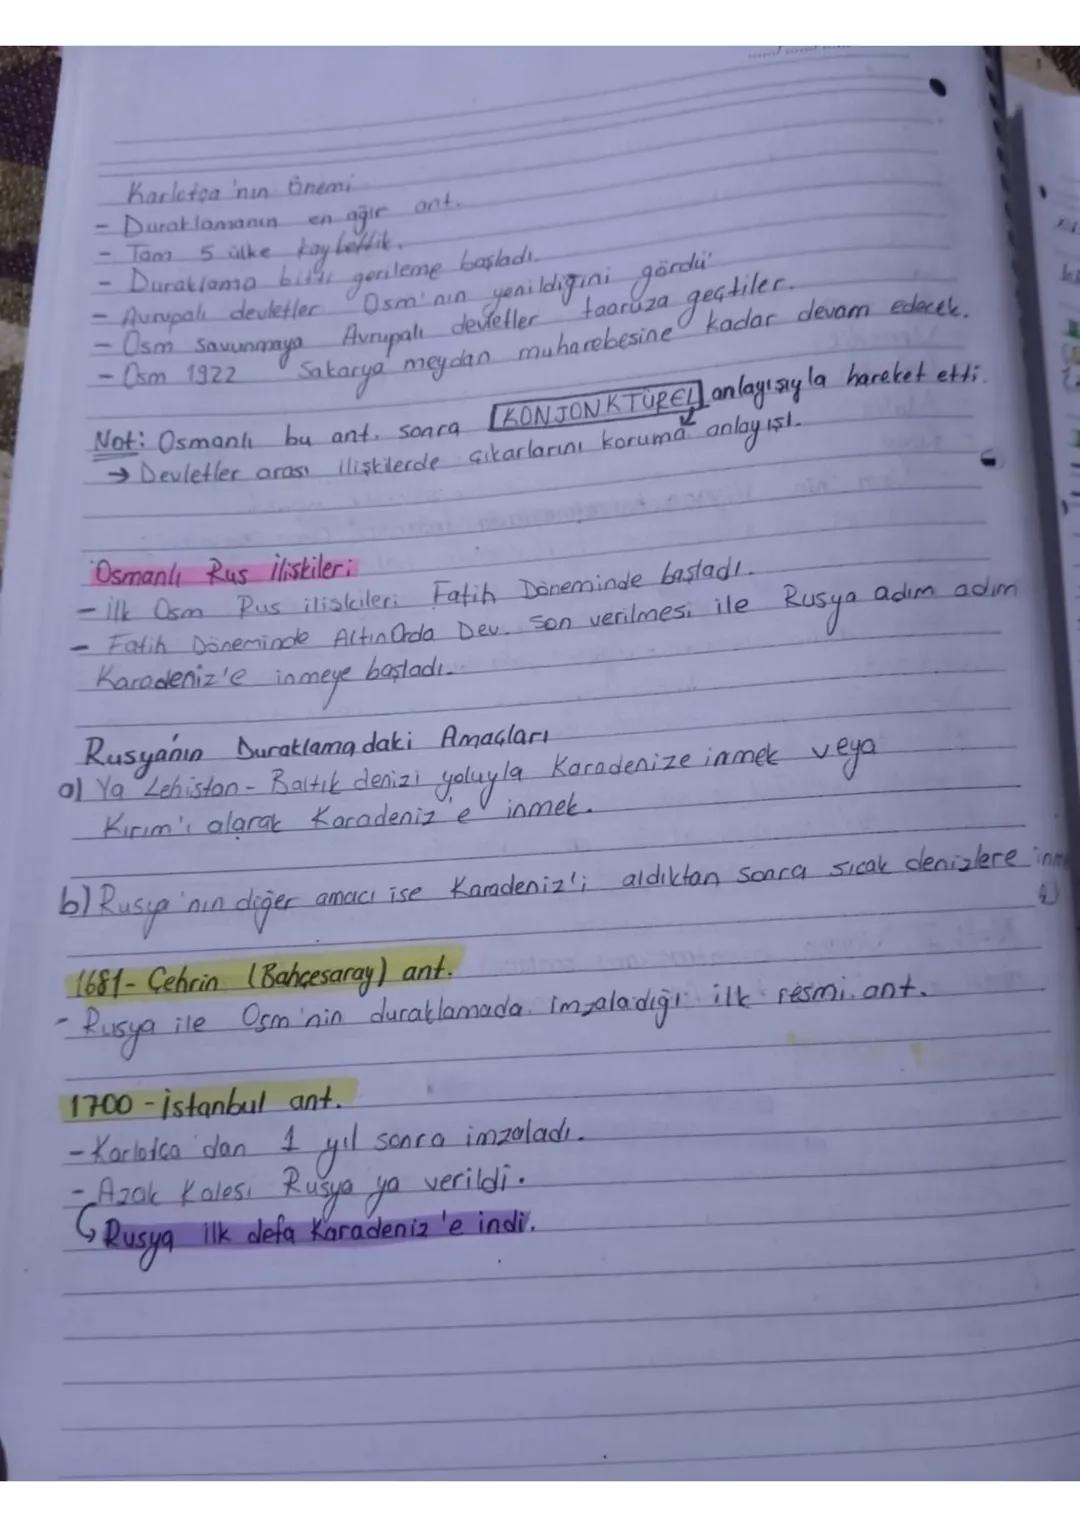 Karlofça'nın Önemi
- Duraklamanın en ağır ant.
- Tam 5 ülke kaybettik.
- Duraklama bitti gerileme başladı.
- Avrupalı devletler Osm'nın yenildiğini gördü
- Osm savunmaya Avrupalı devletler taaruza geçtiler.
- Osm 1922 Sakarya meydan muharebesine kadar devam edecek.
Not: Osmanlı bu ant. sonra KONJONKTÜREL anlayışıyla hareket etti.
→ Devletler arası ilişkilerde çıkarlarını koruma anlayışı.
Osmanlı Rus ilişkileri
- İlk Osm Rus ilişkileri Fatih Döneminde başladı.
- Fatih Döneminde Altın Orda Dev. Son verilmesi ile Rusya adım adım
Karadeniz'e inmeye başladı.
Rusyanın Duraklamadaki Amaçları
a) Ya Lehistan - Baltık denizi yoluyla Karadenize inmek veya
Kırım'ı alarak Karadeniz'e inmek.
b) Rusya'nın diğer amacı ise Karadeniz'i aldıktan sonra sıcak denizlere
1681- Çehrin (Bahçesaray) ant.
- Rusya ile Osm'nin duraklamada imzaladığı ilk resmi ant.
1700 - istanbul ant.
- Karlofça'dan 1 yıl sonra imzaladı.
- Azak Kalesi Rusya ya verildi.
Rusya ilk defa Karadeniz'e indi.